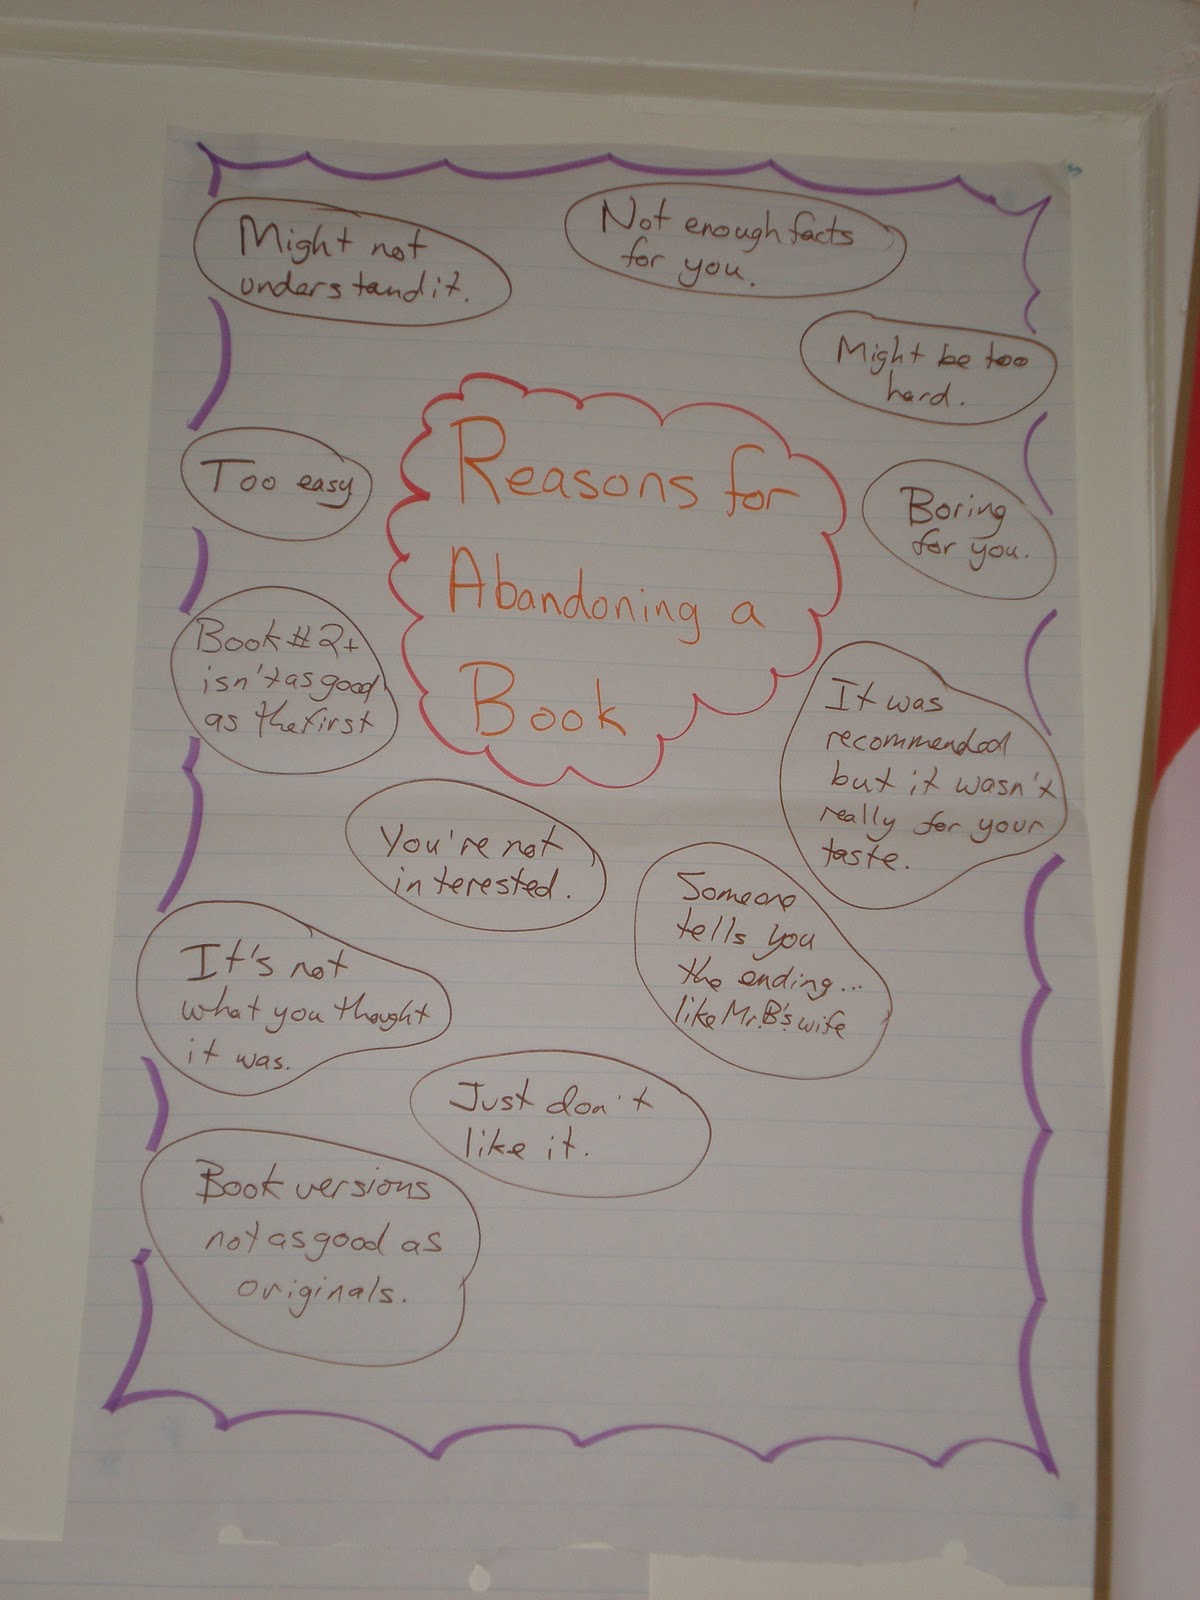 Might not
understand it.
Not enough facts
for you.
Might be too
hard.
Reasons for
Abandoning a
Book
Too easy
Boring
for you.
Book #2+
isn't as good
as the first
It was
recommended
but it wasn't
really for your
taste.
You're not
interested.
Someone
tells you
the ending...
like Mr. B's wife
It's not
what you thought
it was.
Just don't
like it.
Book versions
not as good as
originals.